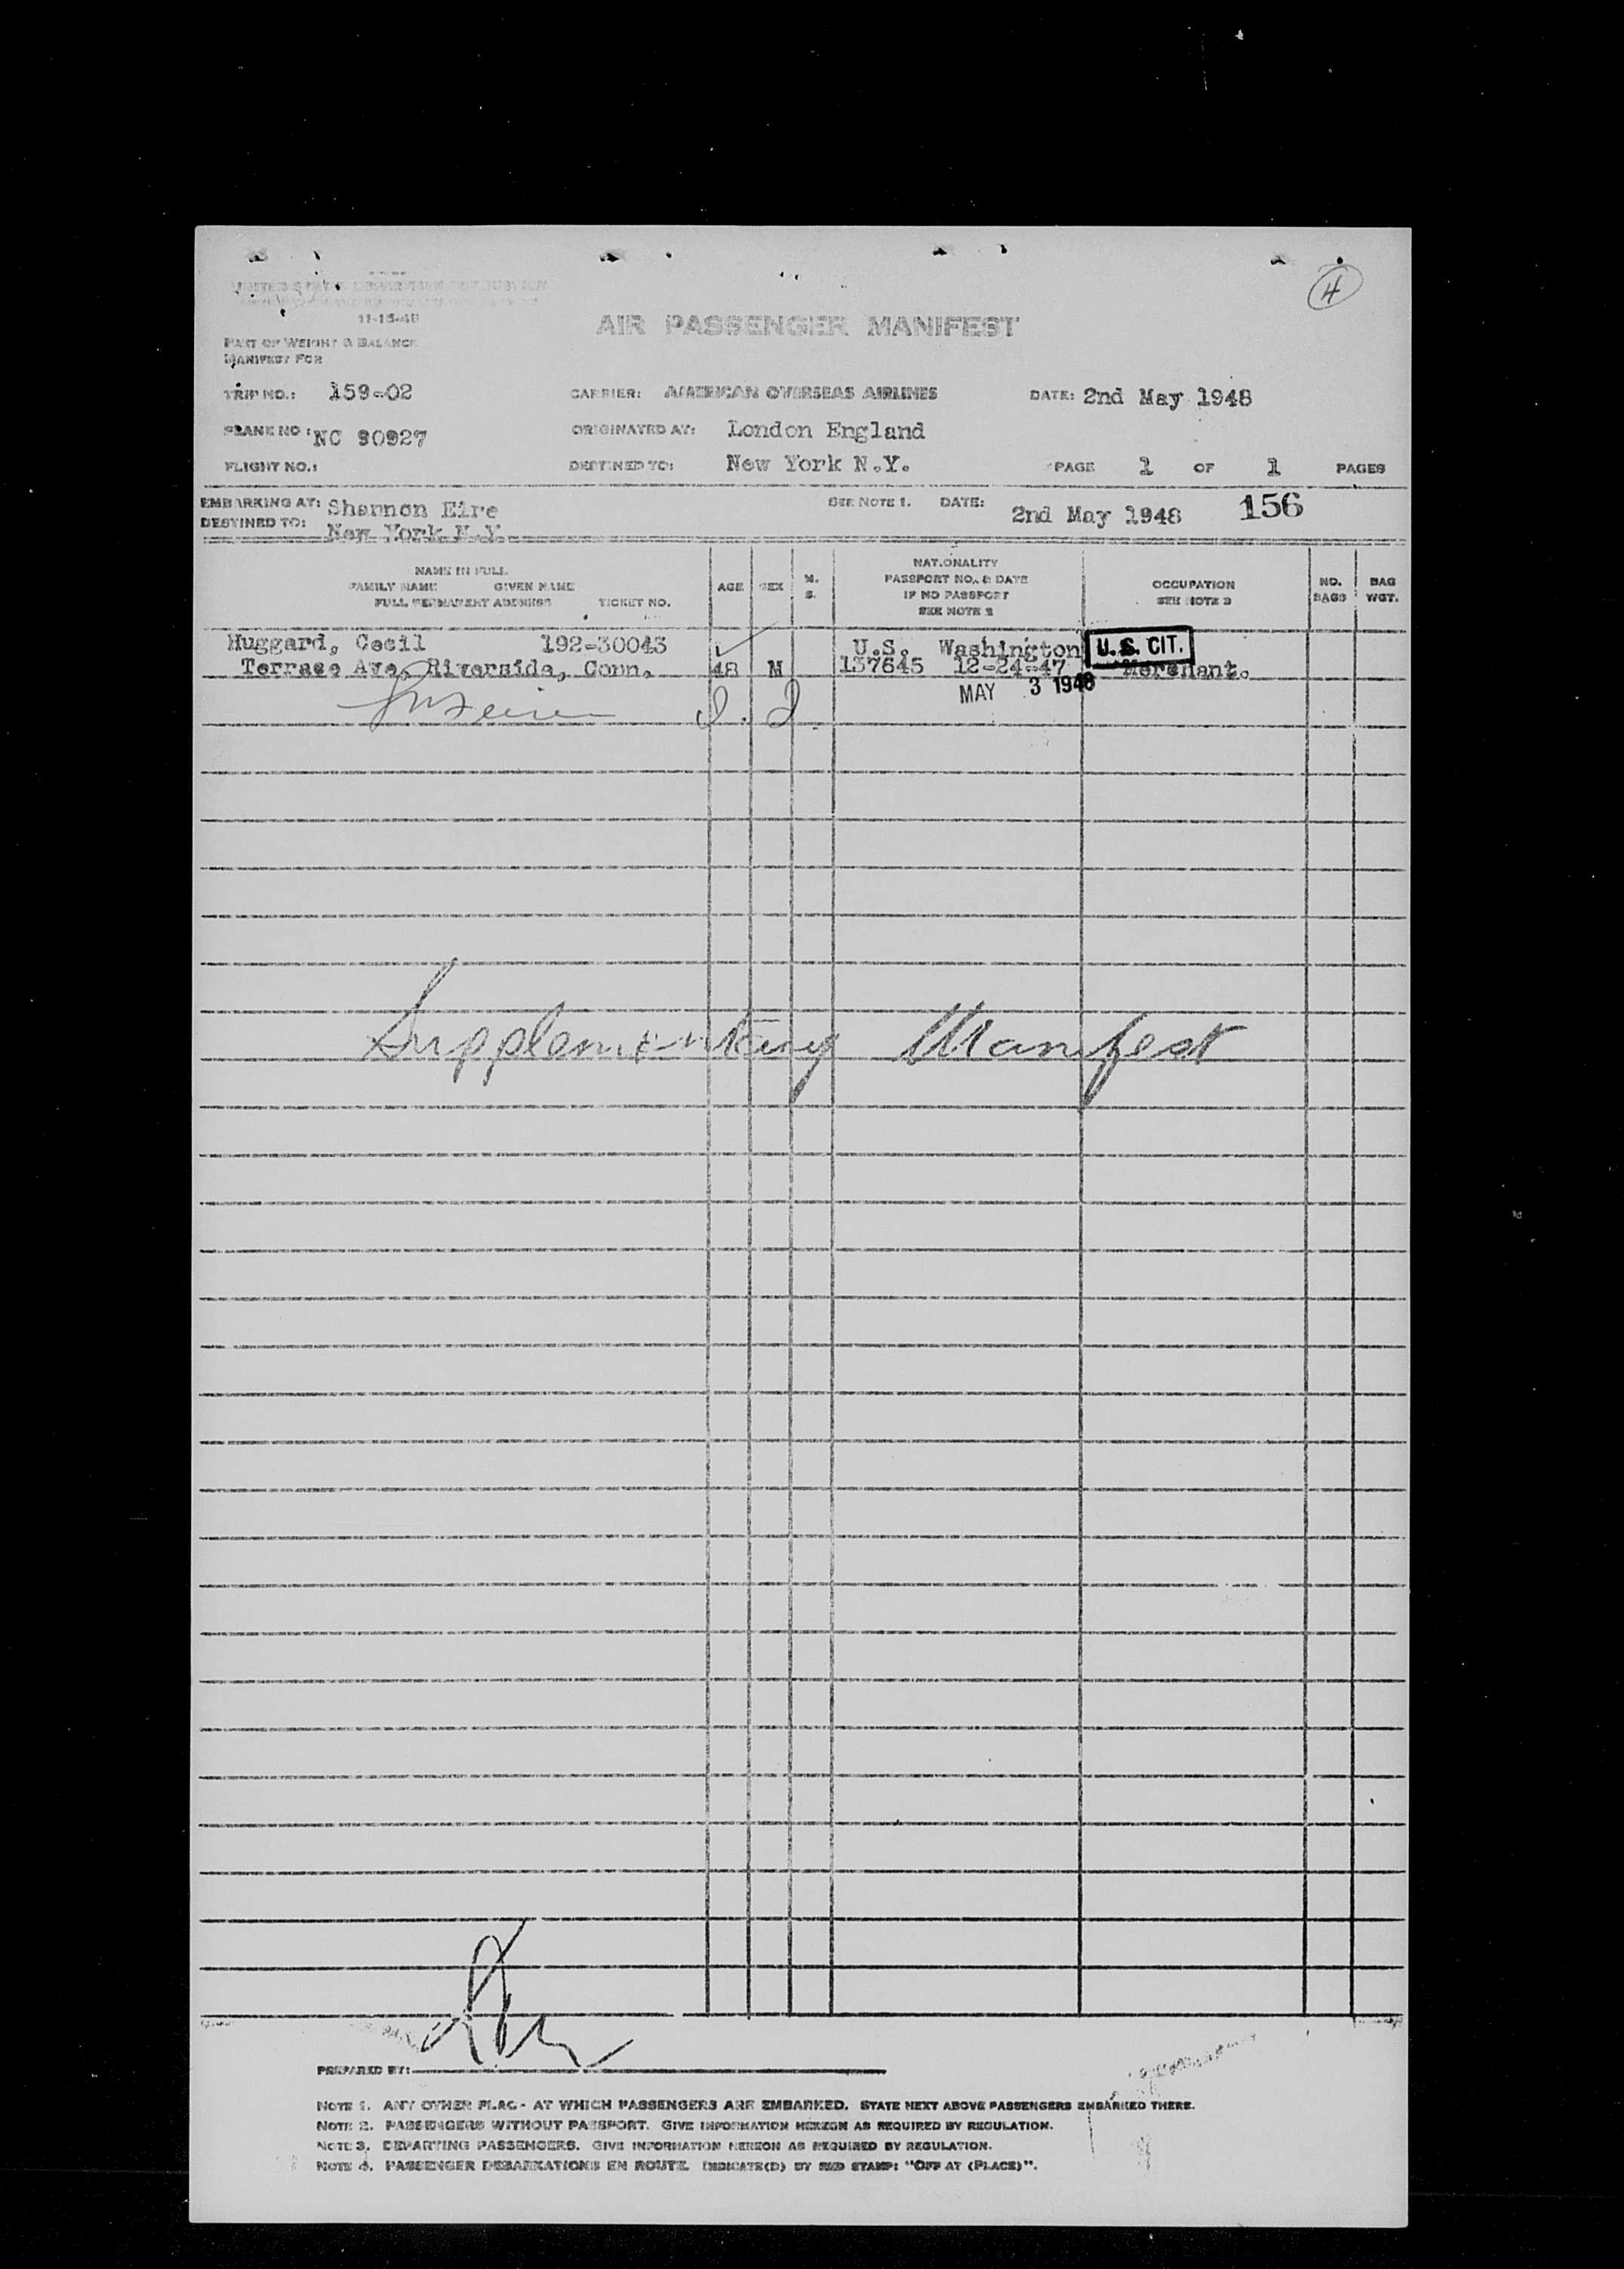 4
11-15-40
AIR PASSENGER MANIFEST
PART OF WEIGHT & BALANCE
MANIFEST FOR
TRIP NO.: 159-02 CARRIER: AMERICAN OVERSEAS AIRLINES DATE: 2nd May 1948
PLANE NO: NC 90927 ORIGINATED AT: London England
FLIGHT NO.: DESTINED TO: New York N.Y. PAGE 1 OF 1 PAGES
EMBARKING AT: Shannon Eire SEE NOTE 1. DATE: 2nd May 1948 156
DESTINED TO: New York N.Y.
NAME IN FULL
FAMILY NAME GIVEN NAME
FULL PERMANENT ADDRESS TICKET NO.
AGE SEX M. S.
NATIONALITY
PASSPORT NO. & DATE
IF NO PASSPORT
SEE NOTE 2
OCCUPATION
SEE NOTE 3
NO. BAGS
BAG WGT.
Huggard, Cecil 192-30043 U.S. Washington U.S. CIT.
Terrace Ave. Riverside, Conn. 48 M 137645 12-24-47 Merchant.
MAY 3 1948
Supplementary Manifest
PREPARED BY:
NOTE 1. ANY OTHER PLACE AT WHICH PASSENGERS ARE EMBARKED. STATE NEXT ABOVE PASSENGERS EMBARKED THERE.
NOTE 2. PASSENGERS WITHOUT PASSPORT. GIVE INFORMATION HEREON AS REQUIRED BY REGULATION.
NOTE 3. DEPARTING PASSENGERS. GIVE INFORMATION HEREON AS REQUIRED BY REGULATION.
NOTE 4. PASSENGER DEBARKATIONS EN ROUTE. INDICATE(D) BY RED STAMP: "OFF AT (PLACE)".